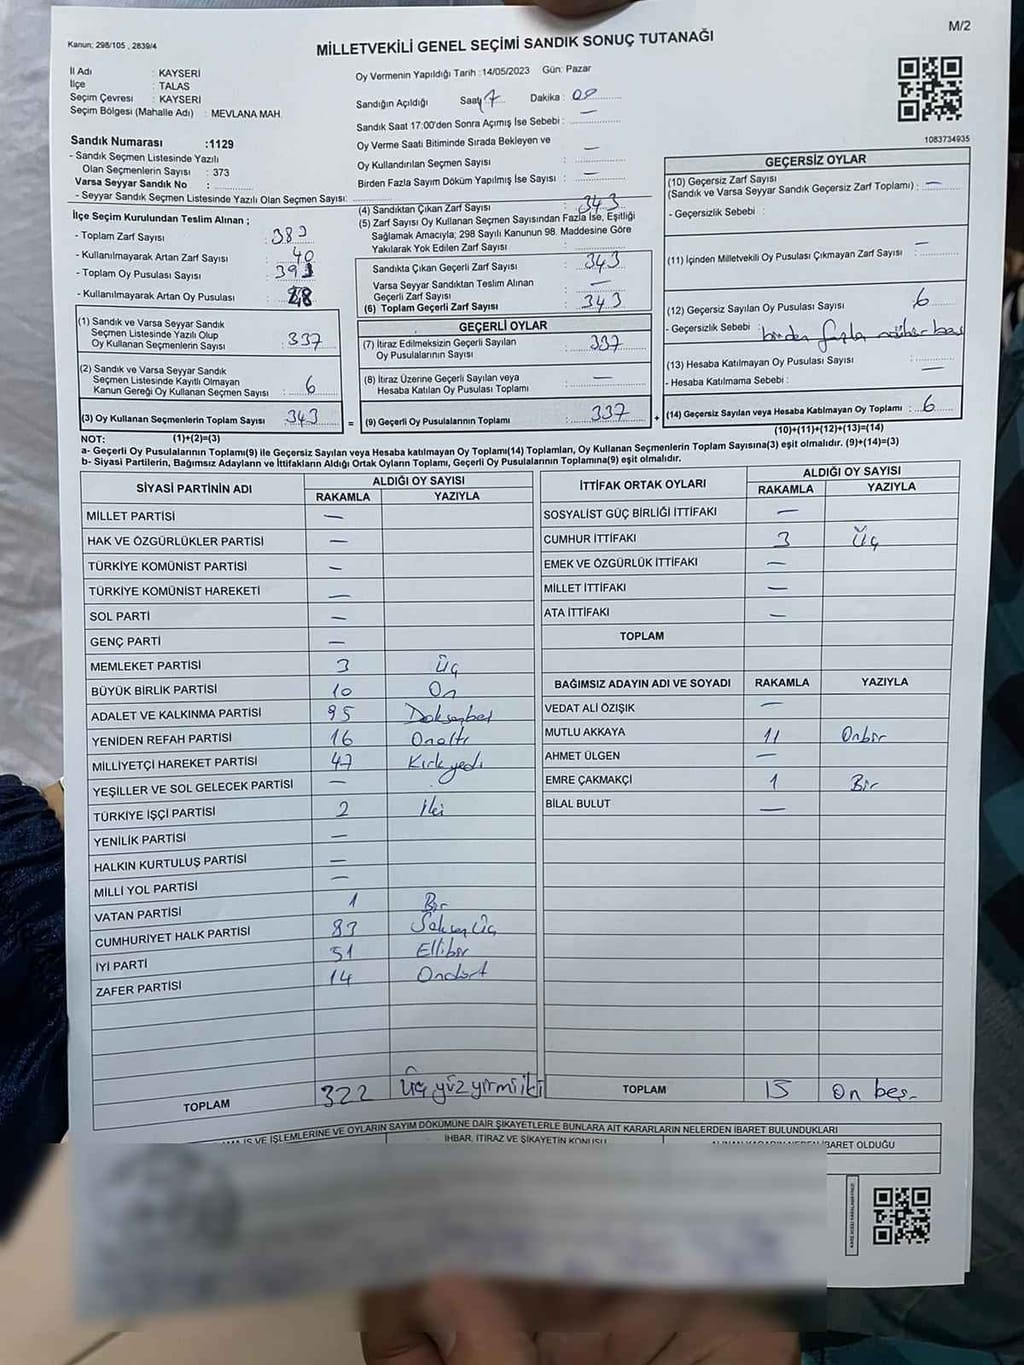 Kanun; 298/105 , 2839/4
M/2
MİLLETVEKİLİ GENEL SEÇİMİ SANDIK SONUÇ TUTANAĞI
İl Adı : KAYSERİ
İlçe : TALAS
Seçim Çevresi : KAYSERİ
Seçim Bölgesi (Mahalle Adı) : MEVLANA MAH.
Sandık Numarası :1129
- Sandık Seçmen Listesinde Yazılı
Olan Seçmenlerin Sayısı : 373
Varsa Seyyar Sandık No :
- Seyyar Sandık Seçmen Listesinde Yazılı Olan Seçmen Sayısı:
Oy Vermenin Yapıldığı Tarih :14/05/2023 Gün: Pazar
Sandığın Açıldığı Saat 17 Dakika : 00
Sandık Saat 17:00'den Sonra Açımış İse Sebebi : —
Oy Verme Saati Bitiminde Sırada Bekleyen ve
Oy Kullandırılan Seçmen Sayısı : —
Birden Fazla Sayım Döküm Yapılmış İse Sayısı : —
1083734935
İlçe Seçim Kurulundan Teslim Alınan ;
- Toplam Zarf Sayısı : 383
- Kullanılmayarak Artan Zarf Sayısı : 40
- Toplam Oy Pusulası Sayısı : 391
- Kullanılmayarak Artan Oy Pusulası :
(1) Sandık ve Varsa Seyyar Sandık
Seçmen Listesinde Yazılı Olup
Oy Kullanan Seçmenlerin Sayısı : 337
(2) Sandık ve Varsa Seyyar Sandık
Seçmen Listesinde Kayıtlı Olmayan
Kanun Gereği Oy Kullanan Seçmen Sayısı : 6
(3) Oy Kullanan Seçmenlerin Toplam Sayısı : 343
(4) Sandıktan Çıkan Zarf Sayısı : 343
(5) Zarf Sayısı Oy Kullanan Seçmen Sayısından Fazla İse, Eşitliği
Sağlamak Amacıyla; 298 Sayılı Kanunun 98. Maddesine Göre
Yakılarak Yok Edilen Zarf Sayısı :
Sandıkta Çıkan Geçerli Zarf Sayısı : 343
Varsa Seyyar Sandıktan Teslim Alınan
Geçerli Zarf Sayısı : —
(6) Toplam Geçerli Zarf Sayısı : 343
GEÇERLİ OYLAR
(7) İtiraz Edilmeksizin Geçerli Sayılan
Oy Pusulalarının Sayısı : 337
(8) İtiraz Üzerine Geçerli Sayılan veya
Hesaba Katılan Oy Pusulası Toplamı : —
= (9) Geçerli Oy Pusulalarının Toplamı : 337 +
GEÇERSİZ OYLAR
(10) Geçersiz Zarf Sayısı
(Sandık ve Varsa Seyyar Sandık Geçersiz Zarf Toplamı) : —
- Geçersizlik Sebebi :
(11) İçinden Milletvekili Oy Pusulası Çıkmayan Zarf Sayısı : —
(12) Geçersiz Sayılan Oy Pusulası Sayısı : 6
- Geçersizlik Sebebi : birden fazla mühür bas
(13) Hesaba Katılmayan Oy Pusulası Sayısı : —
- Hesaba Katılmama Sebebi :
(14) Geçersiz Sayılan veya Hesaba Katılmayan Oy Toplamı : 6
(10)+(11)+(12)+(13)=(14)
NOT: (1)+(2)=(3)
a- Geçerli Oy Pusulalarının Toplam(9) ile Geçersiz Sayılan veya Hesaba katılmayan Oy Toplamı(14) Toplamları, Oy Kullanan Seçmenlerin Toplam Sayısına(3) eşit olmalıdır. (9)+(14)=(3)
b- Siyasi Partilerin, Bağımsız Adayların ve İttifakların Aldığı Ortak Oyların Toplamı, Geçerli Oy Pusulalarının Toplamına(9) eşit olmalıdır.
SİYASİ PARTİNİN ADI ALDIĞI OY SAYISI
RAKAMLA YAZIYLA
MİLLET PARTİSİ —
HAK VE ÖZGÜRLÜKLER PARTİSİ —
TÜRKİYE KOMÜNİST PARTİSİ —
TÜRKİYE KOMÜNİST HAREKETİ —
SOL PARTİ —
GENÇ PARTİ —
MEMLEKET PARTİSİ 3 Üç
BÜYÜK BİRLİK PARTİSİ 10 On
ADALET VE KALKINMA PARTİSİ 95 Doksanbeş
YENİDEN REFAH PARTİSİ 16 Onaltı
MİLLİYETÇİ HAREKET PARTİSİ 47 Kırkyedi
YEŞİLLER VE SOL GELECEK PARTİSİ —
TÜRKİYE İŞÇİ PARTİSİ 2 İki
YENİLİK PARTİSİ —
HALKIN KURTULUŞ PARTİSİ —
MİLLİ YOL PARTİSİ —
VATAN PARTİSİ 1 Bir
CUMHURİYET HALK PARTİSİ 83 Seksen Üç
İYİ PARTİ 51 Ellibir
ZAFER PARTİSİ 14 Ondört
TOPLAM 322 Üçyüzyirmiiki
İTTİFAK ORTAK OYLARI ALDIĞI OY SAYISI
RAKAMLA YAZIYLA
SOSYALİST GÜÇ BİRLİĞİ İTTİFAKI —
CUMHUR İTTİFAKI 3 Üç
EMEK VE ÖZGÜRLÜK İTTİFAKI —
MİLLET İTTİFAKI —
ATA İTTİFAKI —
TOPLAM
BAĞIMSIZ ADAYIN ADI VE SOYADI RAKAMLA YAZIYLA
VEDAT ALİ ÖZIŞIK —
MUTLU AKKAYA 11 Onbir
AHMET ÜLGEN —
EMRE ÇAKMAKÇİ 1 Bir
BİLAL BULUT —
TOPLAM 15 On beş
İŞ VE İŞLEMLERİNE VE OYLARIN SAYIM DÖKÜMÜNE DAİR ŞİKAYETLERLE BUNLARA AİT KARARLARIN NELERDEN İBARET BULUNDUKLARI
İHBAR, İTİRAZ VE ŞİKAYETİN KONUSU
İBARET OLDUĞU